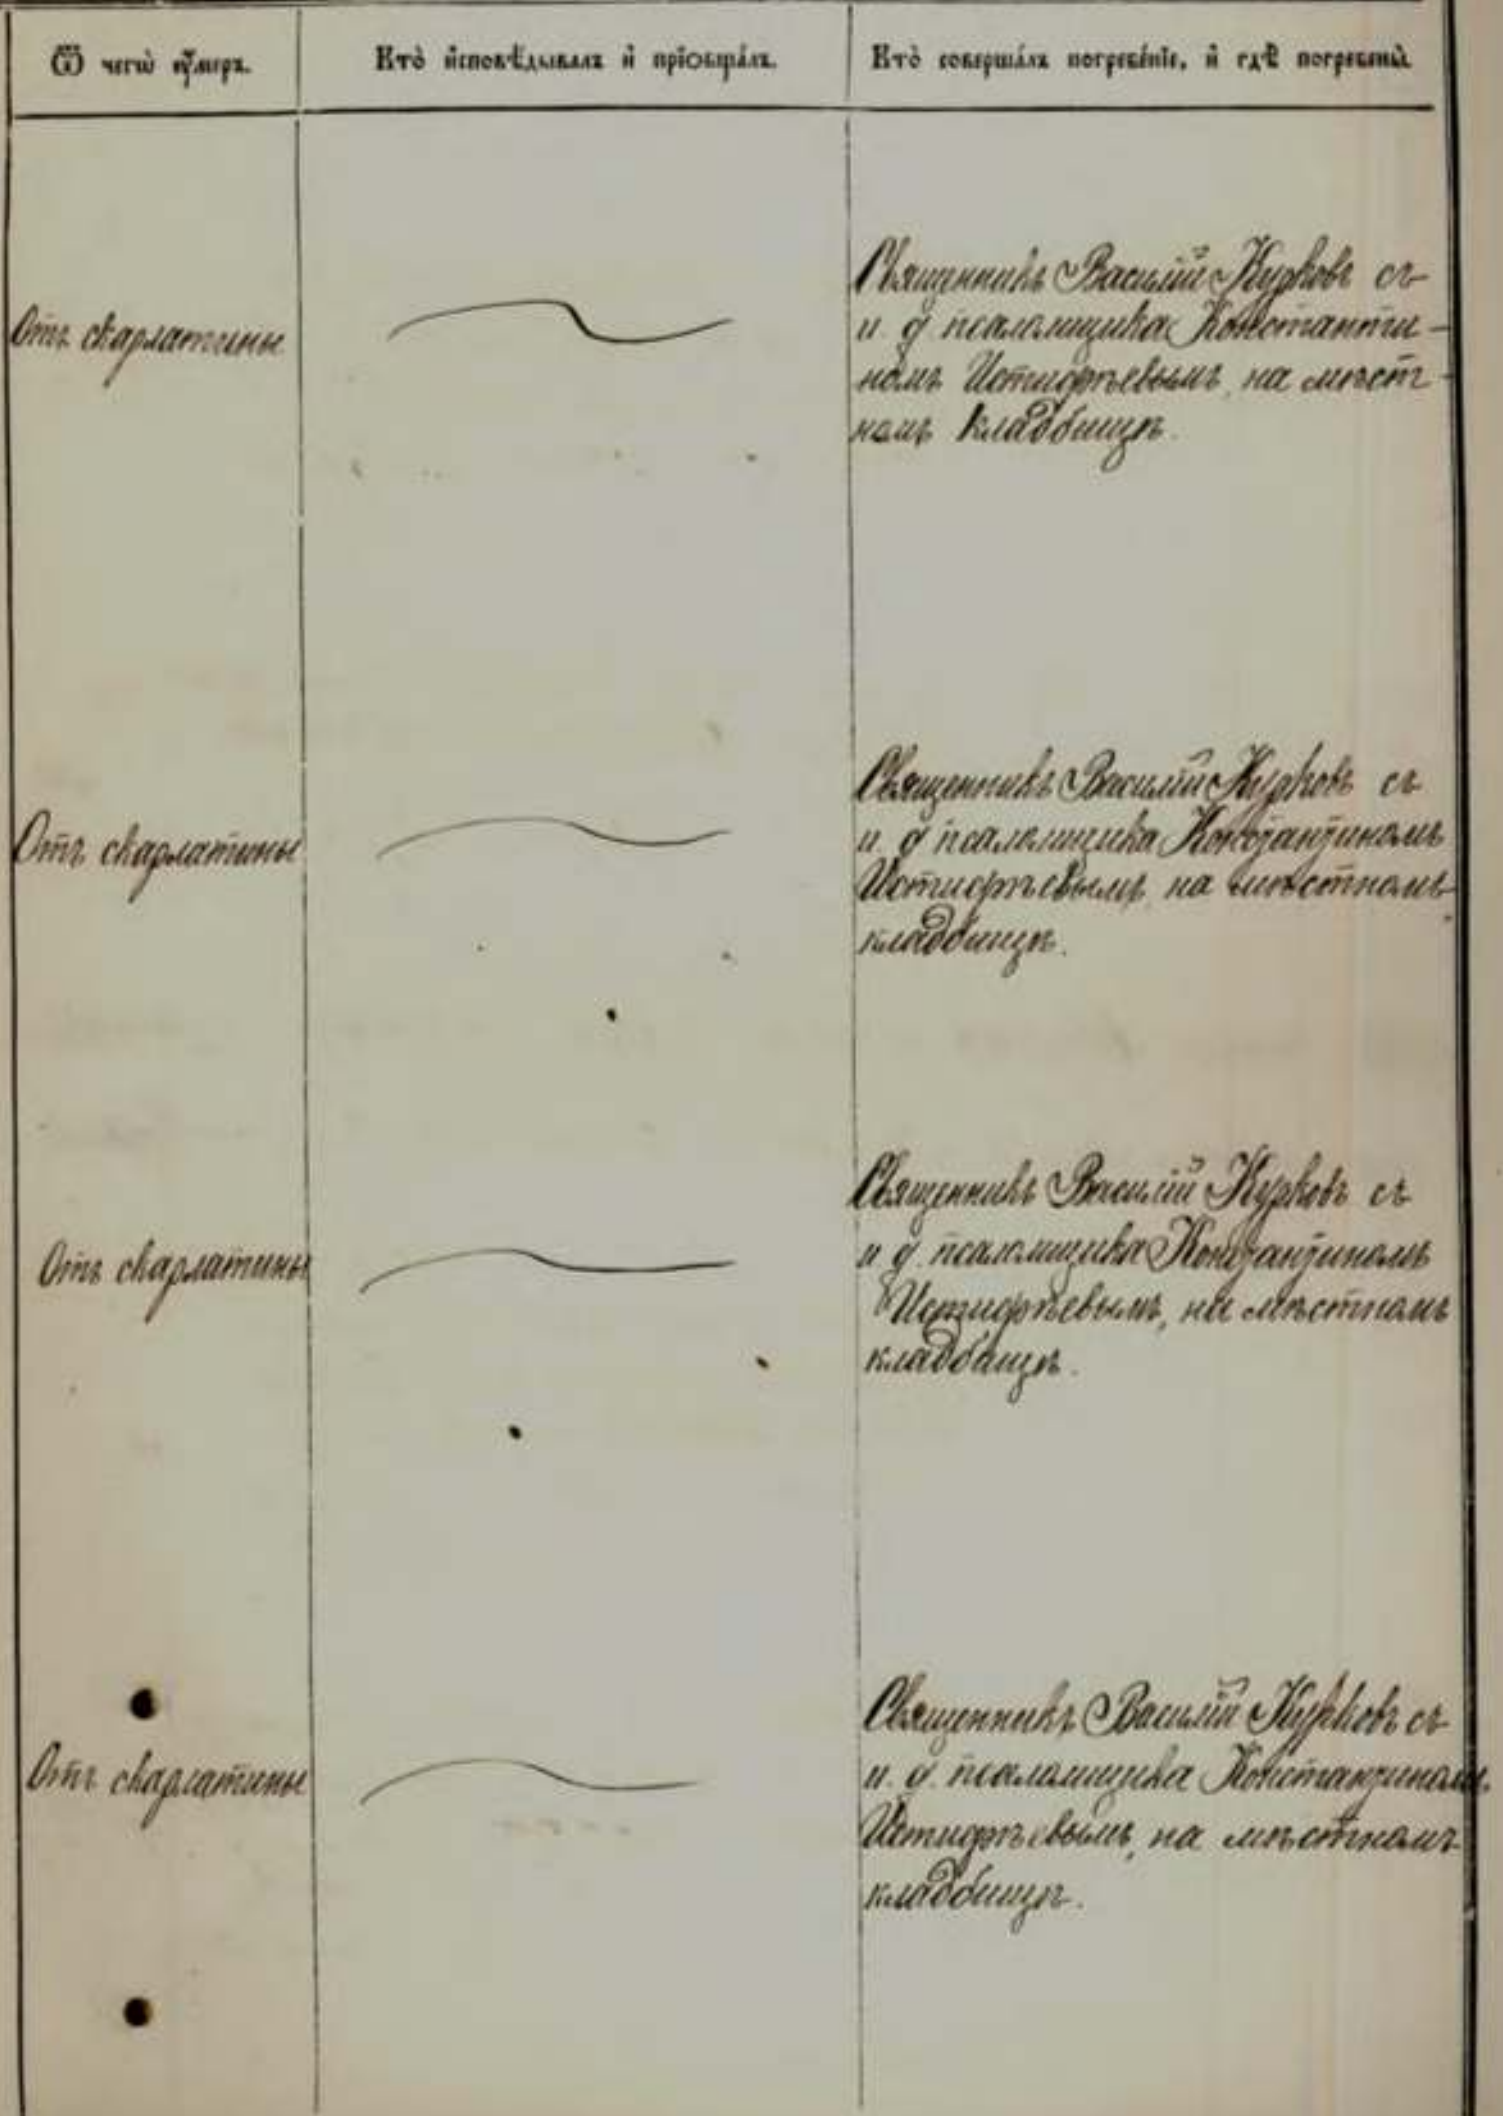 Ѿ чегѡ ᲂу҆́меръ.
Кто̀ и҆сповѣ́дывалъ и҆ прїѡбща́лъ.
Кто̀ соверша́лъ погребе́нїе, и҆ гдѣ̀ погребены̀.
Отъ скарлатины.
Священникъ Василій Курковъ съ
и. д. псаломщика Константи-
номъ Истифѣевымъ, на мѣст-
номъ кладбищѣ.
Отъ скарлатины
Священникъ Василій Курковъ съ
и. д. псаломщика Константиномъ
Истифѣевымъ, на мѣстномъ
кладбищѣ.
Отъ скарлатины
Священникъ Василій Курковъ съ
и. д. псаломщика Константиномъ
Истифѣевымъ, на мѣстномъ
кладбищѣ.
Отъ скарлатины
Священникъ Василій Курковъ съ
и. д. псаломщика Константиномъ
Истифѣевымъ, на мѣстномъ
кладбищѣ.